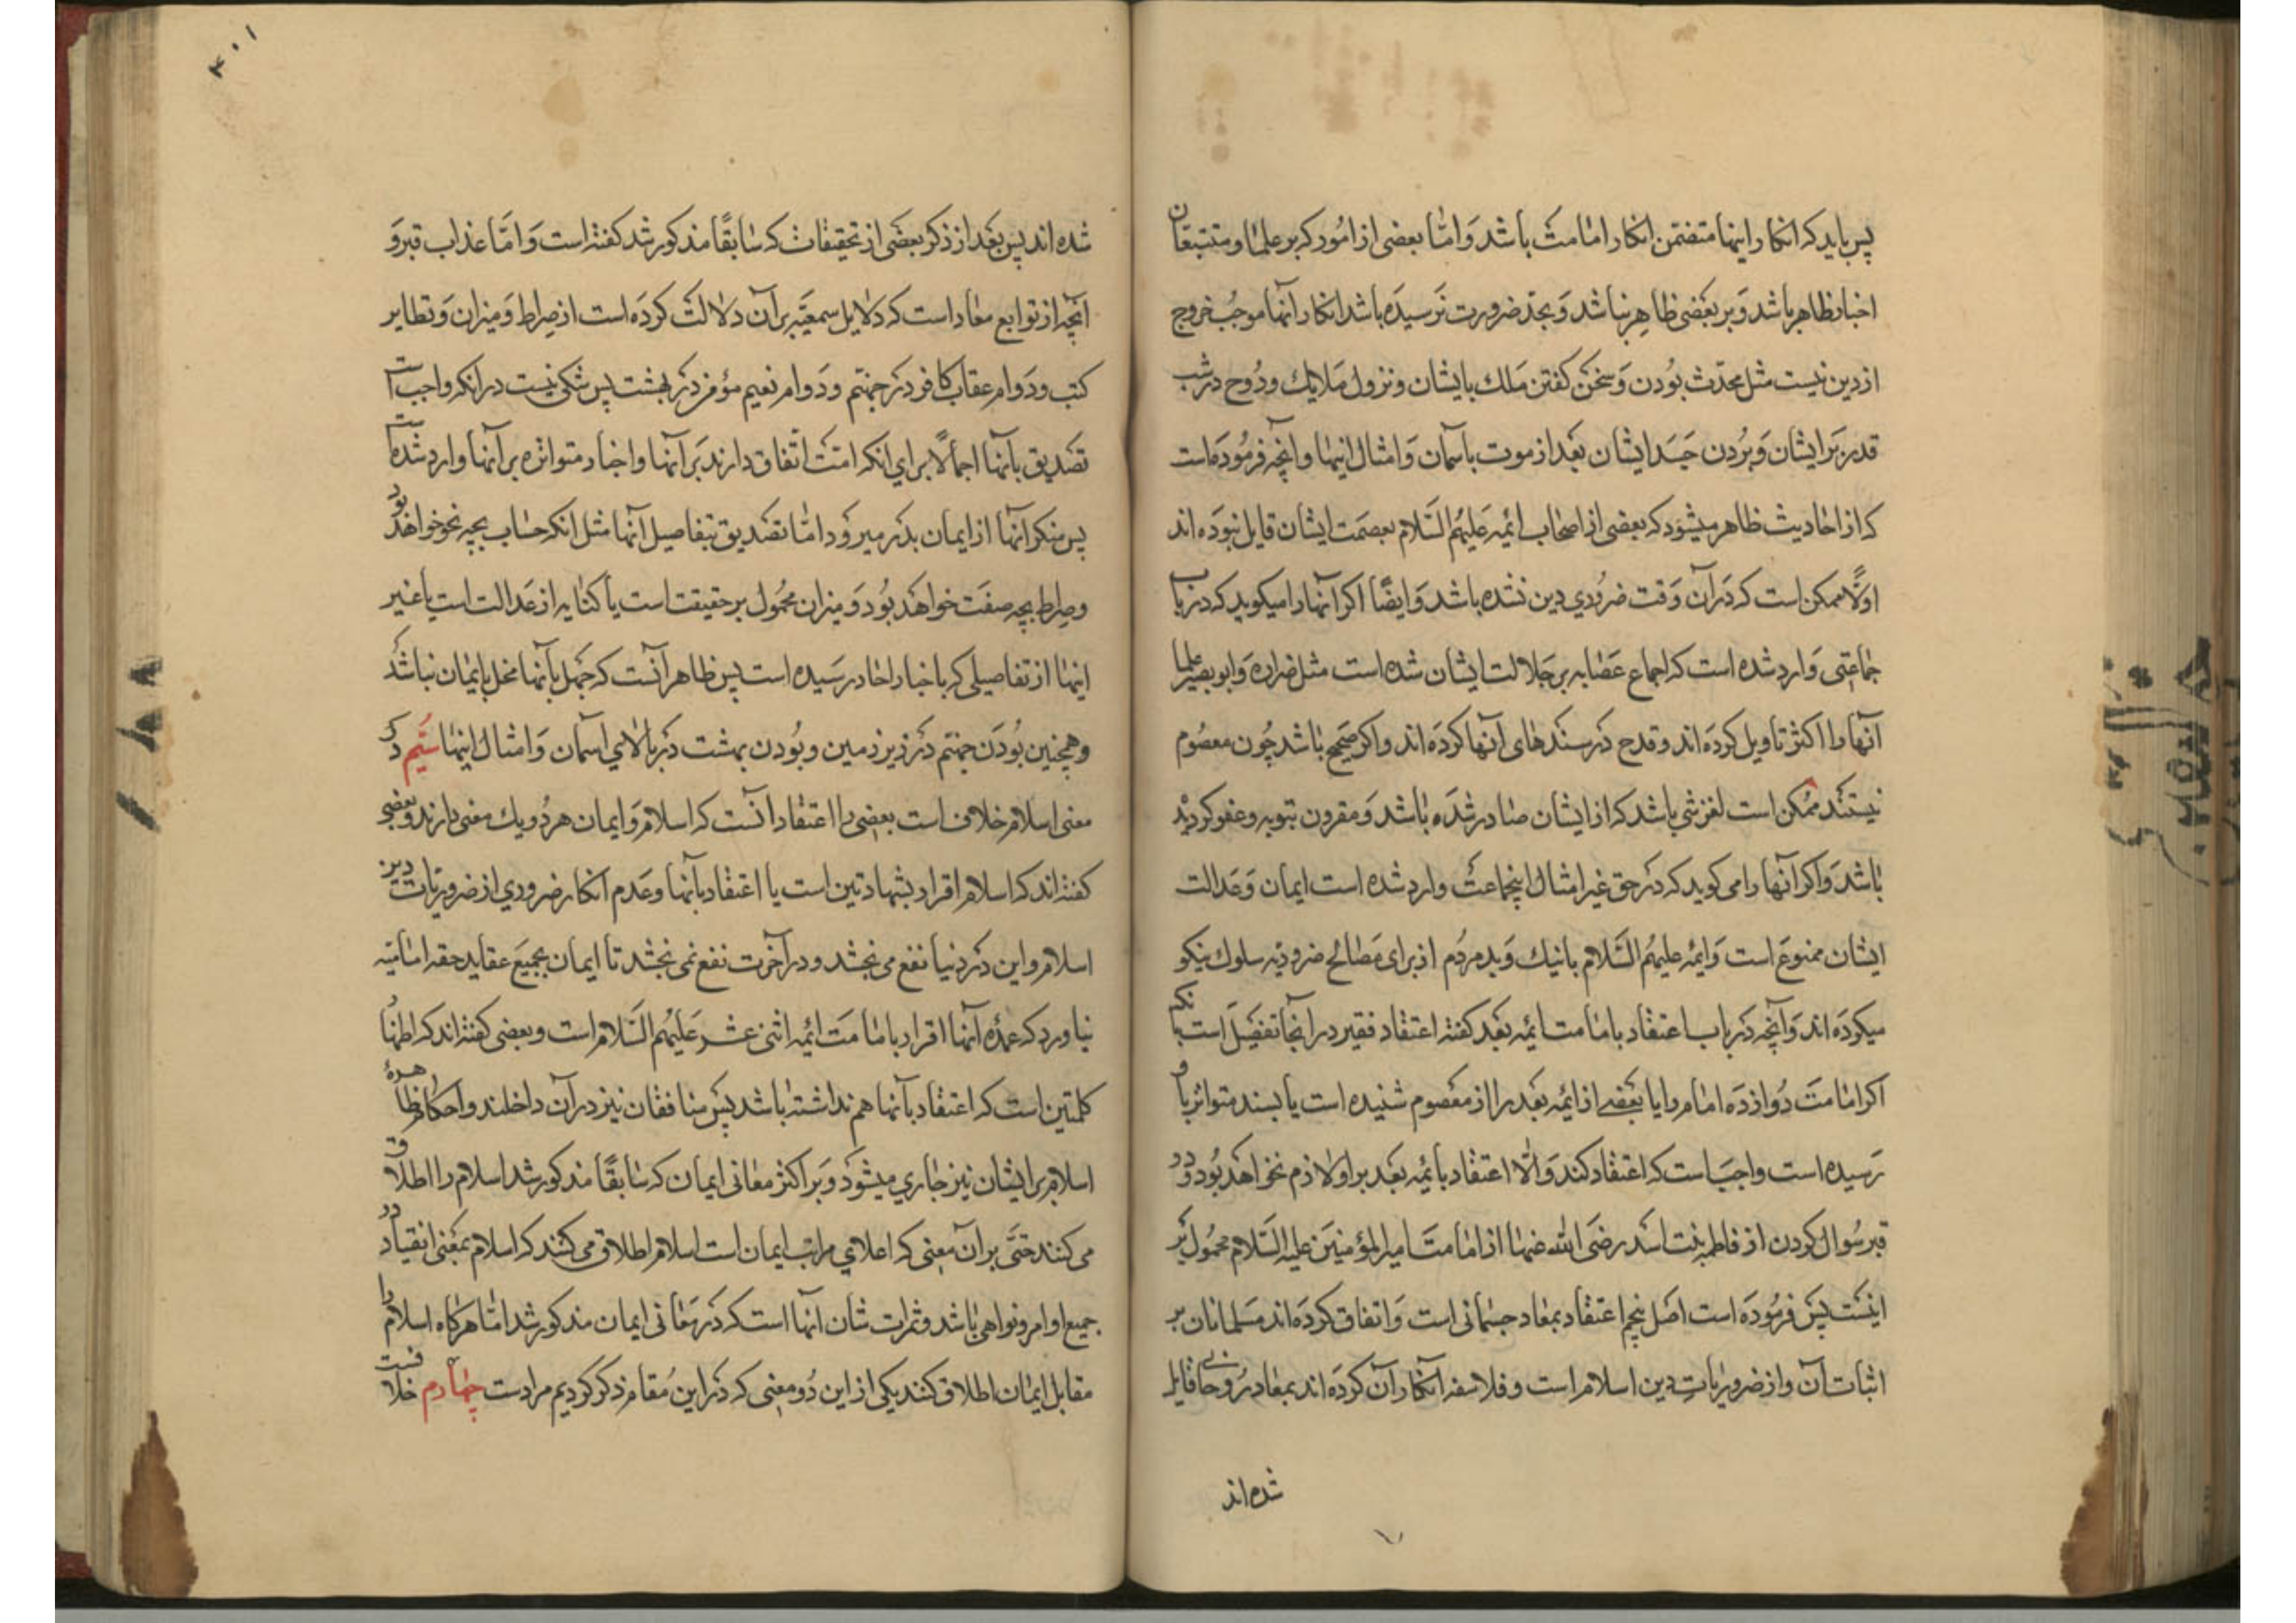 پس باید که انکار اینها متضمن انکار امامت باشد و امّا بعضی از امور که بر علما و متتبعان
اخبار ظاهر باشد و بر بعضی ظاهر نباشد و بحدّ ضرورت نرسیده باشد انکار آنها موجب خروج
از دین نیست مثل محدّث بودن و سخن کفتن ملك با یشان و نزول ملایك و روح در شب
قدر بر ایشان و بردن جسد ایشان بعد از موت بآسمان و امثال اینها و آنچه فرموده است
که از احادیث ظاهر میشود که بعضی از اصحاب ائمه علیهم السّلام بعصمت ایشان قایل نبوده اند
اولاً ممکن است که در آن وقت ضروری دین نشده باشد و ایضًا اکر آنها را میکوید که در باب
جماعتی وارد شده است که اجماع عصابه بر جلالت ایشان شده است مثل زراره و ابو بصیر علما
آنها را اکثر تاویل کرده اند و قدح در سندهای آنها کرده اند و اکر صحیح باشد چون معصوم
نیستند ممکن است لغزشی باشد که از ایشان صادر شده باشد و مقرون بتوبه و عفو کردیده
باشد و اکر آنها را می کوید که در حق غیر امثال اینجماعت وارد شده است ایمان و عدالت
ایشان ممنوع است و ایمه علیهم السّلام با نیك و بد مردم از برای مصالح ضروریه سلوك نیکو
میکرده اند و آنچه در باب اعتقاد بامامت ایمه بعد کفته اعتقاد فقیر در انجا تفصیل است بانکه
اکر امامت دوازده امام را یا بعضی از ائمه بعد را از معصوم شنیده است یا بسند متواتر باو
رسیده است واجبست که اعتقاد کند و الّا اعتقاد بائمه بعد بر او لازم نخواهد بود و در
قبر سوال کردن از فاطمه بنت اسد رضی الله عنها از امامت امیر المؤمنین علیه السّلام محمول بر
اینست پس فرموده است اصل پنجم اعتقاد بمعاد جسمانی است و اتفاق کرده اند مسلمانان بر
اثبات آن و از ضروریات دین اسلام است و فلاسفه انکار آن کرده اند بمعاد روحانی قایل
شده اند
۳۰۱
شده اند پس بعد از ذکر بعضی از تحقیقات که سابقًا مذکور شد کفته است و امّا عذاب قبر و
آنچه از توابع معاد است که دلایل سمعیّه بر آن دلالت کرده است از صراط و میزان و تطایر
کتب و دوام عقاب کافر در جهنّم و دوام نعیم مؤمن در بهشت پس شکی نیست در انکه واجب است
تصدیق بآنها اجمالاً برای انکه امّت اتّفاق دارند بر آنها و اخبار متواتره بر آنها وارد شده است
پس منکر آنها از ایمان بدر میرود امّا تصدیق بتفاصیل آنها مثل انکه حساب بچه نحو خواهد بود
و صراط بچه صفت خواهد بود و میزان محمول بر حقیقت است یا کنایه از عدالت است یا غیر
اینها از تفاصیلی که باخبار احاد رسیده است پس ظاهر آنست که جهل بآنها مخل بایمان نباشد
و همچنین بودن جهنّم در زیر زمین و بودن بهشت در بالای اسمان و امثال اینها سیّم در
معنی اسلام خلاف است بعضی را اعتقاد آنست که اسلام و ایمان هر دو یك معنی دارند و بعضی
کفته اند که اسلام اقرار بشهادتین است یا اعتقاد بآنها و عدم انکار ضروری از ضروریات دین
اسلام و این در دنیا نفع می بخشد و در آخرت نفع نمی بخشد تا ایمان بجمیع عقاید حقه امامیّه
نیاورد که عمده آنها اقرار بامامت ائمه اثنی عشر علیهم السّلام است و بعضی کفته اند که اظهار
کلمتین است که اعتقاد بآنها هم نداشته باشد پس منافقان نیز در آن داخلند و احکام ظاهره
اسلام بر ایشان نیز جاری میشود و بر اکثر معانی ایمان که سابقًا مذکور شد اسلام را اطلاق
می کنند حتّی بر آن معنی که اعلای مراتب ایمان است اسلام اطلاق می کنند که اسلام بمعنی انقیاد در
جمیع اوامر و نواهی باشد و ثمرات شان آنها است که در معانی ایمان مذکور شد امّا هر کاه اسلام را
مقابل ایمان اطلاق کنند یکی از این دو معنی که در این مقام ذکر کردیم مرادست چهارم خلافست